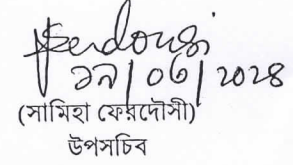 Ferdousi
১৯/০৬/২০২৪
(সামিহা ফেরদৌসী)
উপসচিব